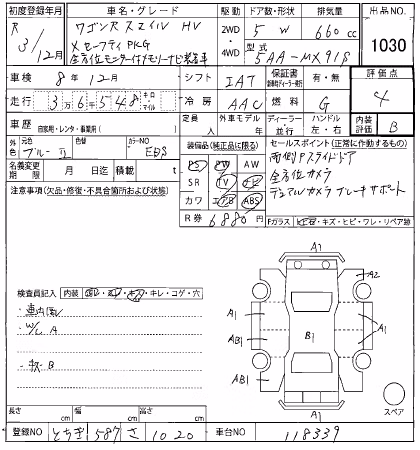 初度登録年月 車名・グレード 駆動 ドア数・形状 排気量 出品NO.
R 3/12月 ワゴンRスマイル HV 2WD 4WD 5 W 660 cc 1030
メ セーフティPKG 型式
全方位モニター付メモリーナビ 5AA-MX91S
車検 8年12月 シフト IAT 保証書 有・無 評価点
走行 3万6千548 キロ マイル 冷房 AAC 燃料 G 4
車歴 自家用・レンタ・事業用( ) 定員 人 外車モデル年 ディーラー 並行 ハンドル 左・右 内装評価 B
外色 元色 ブルーⅡ 色替 カラーNO 装備品(純正品に限る) セールスポイント(正常に作動するもの)
PS PW AW 両側Pスライドドア
名義変更期限 月 日迄 積載 t SR TV ナビ 全方位カメラ
注意事項(欠品・修復・不具合箇所および状態) カワ エアB ABS デュアルカメラブレーキサポート
R券 6880 円 Fガラス ヒビ・キズ・ヒビ・ワレ・リペア跡
A1
A2
A1
A1
検査員記入 内装 キレ・コゲ・穴
AB1
B1
A1
W/L A
AB1
B
A1
スペア
長さ cm 幅 cm 高さ cm
登録NO とちぎ 587 さ 1020 車台NO 118339